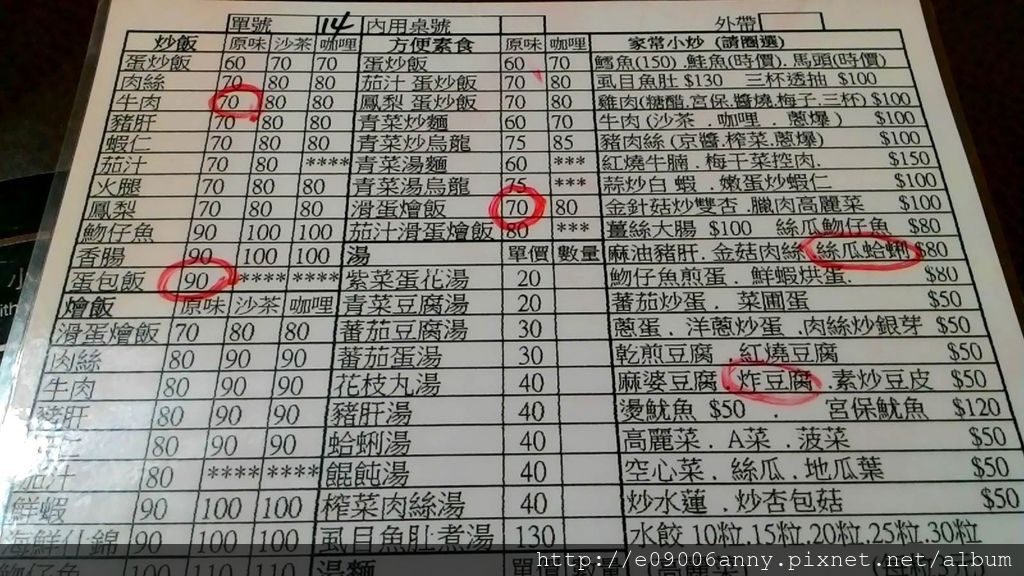 單號 14 內用桌號 外帶
炒飯 原味 沙茶 咖哩 方便素食 原味 咖哩 家常小炒 (請圈選)
蛋炒飯 60 70 70 蛋炒飯 60 70 鱈魚(150) .鮭魚(時價). 馬頭(時價)
肉絲 70 80 80 茄汁 蛋炒飯 70 80 虱目魚肚 $130 三杯透抽 $100
牛肉 70 80 80 鳳梨 蛋炒飯 70 80 雞肉(糖醋.宮保.醬燒.梅子.三杯) $100
豬肝 70 80 80 青菜炒麵 60 70 牛肉 (沙茶 . 咖哩 . 蔥爆 ) $100
蝦仁 70 80 80 青菜炒烏龍 75 85 豬肉絲 (京醬.榨菜.蔥爆) $100
茄汁 70 80 **** 青菜湯麵 60 *** 紅燒牛腩 . 梅干菜控肉. $150
火腿 70 80 80 青菜湯烏龍 75 *** 蒜炒白 蝦 . 嫩蛋炒蝦仁 $100
鳳梨 70 80 80 滑蛋燴飯 70 80 金針菇炒雙杏 .臘肉高麗菜 $100
魩仔魚 90 100 100 茄汁滑蛋燴飯 80 *** 薑絲大腸 $100 絲瓜魩仔魚 $80
香腸 90 100 100 湯 單價 數量 麻油豬肝. 金菇肉絲 絲瓜蛤蜊 $80
蛋包飯 90 **** **** 紫菜蛋花湯 20 魩仔魚煎蛋 . 鮮蝦烘蛋. $80
燴飯 原味 沙茶 咖哩 青菜豆腐湯 20 蕃茄炒蛋 . 菜圃蛋 $50
滑蛋燴飯 70 80 80 蕃茄豆腐湯 30 蔥蛋 . 洋蔥炒蛋 .肉絲炒銀芽 $50
肉絲 80 90 90 蕃茄蛋湯 30 乾煎豆腐 .紅燒豆腐 $50
牛肉 80 90 90 花枝丸湯 40 麻婆豆腐 . 炸豆腐 .素炒豆皮 $50
豬肝 80 90 90 豬肝湯 40 燙魷魚 $50 . 宮保魷魚 $120
仁 80 90 90 蛤蜊湯 40 高麗菜 . A菜 . 菠菜 $50
茄汁 80 **** **** 餛飩湯 40 空心菜 . 絲瓜 . 地瓜葉 $50
鮮蝦 90 100 100 榨菜肉絲湯 40 炒水蓮 . 炒杏包菇 $50
海鮮什錦 90 100 100 虱目魚肚煮湯 130 水餃 10粒.15粒.20粒.25粒.30粒
魩仔魚 90 100 100 湯麵 單價 數量 (高麗菜)
http://e09006anny.pixnet.net/album